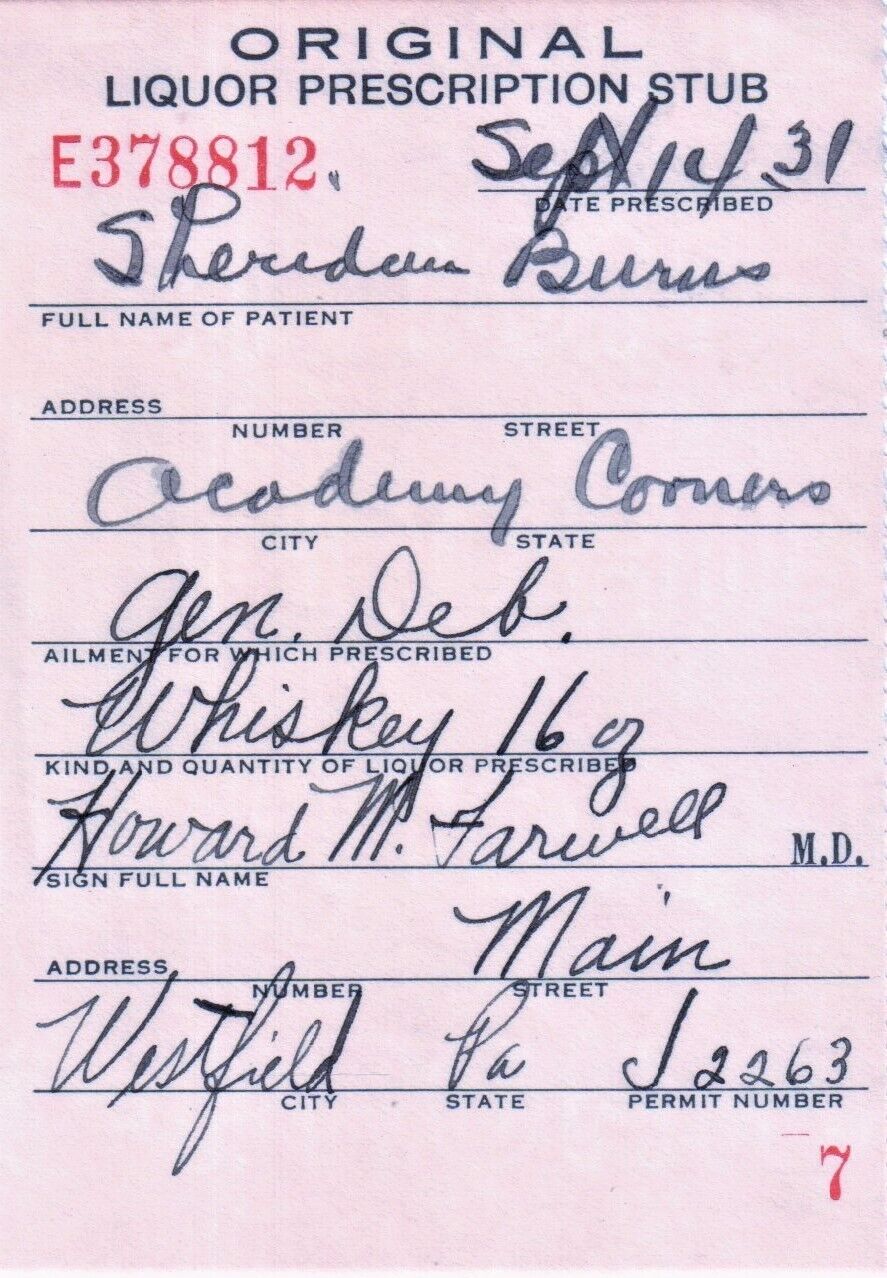 ORIGINAL
LIQUOR PRESCRIPTION STUB
E378812.
Sept 14 31
DATE PRESCRIBED
Sheridan Burns
FULL NAME OF PATIENT
ADDRESS
NUMBER STREET
Academy Corners
CITY STATE
Gen. Deb.
AILMENT FOR WHICH PRESCRIBED
Whiskey 16 oz
KIND AND QUANTITY OF LIQUOR PRESCRIBED
Howard M. Farwell M.D.
SIGN FULL NAME
Main
ADDRESS
NUMBER STREET
Westfield Pa J 2263
CITY STATE PERMIT NUMBER
7